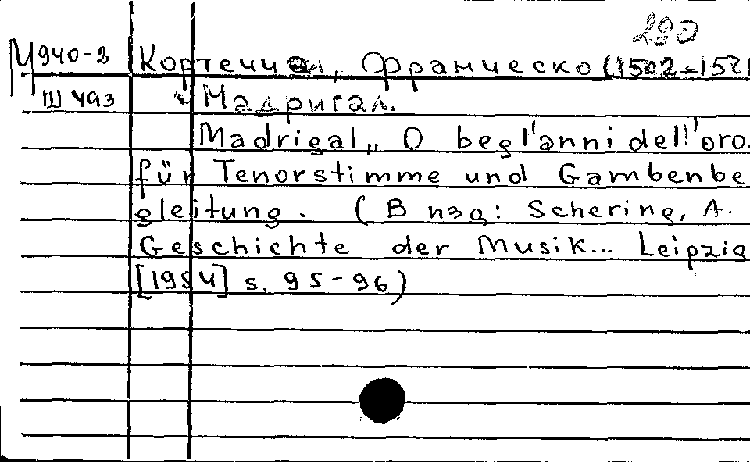 290
М940-2 Кортечча, Франческо (1502-1571
Ш 493 Мадригал.
Madrigal „ O begl'anni dell'oro.
für Tenorstimme und Gambenbe
gleitung. (В изд: Schering, A.
Geschichte der Musik... Leipzig
[1954] s. 95-96)